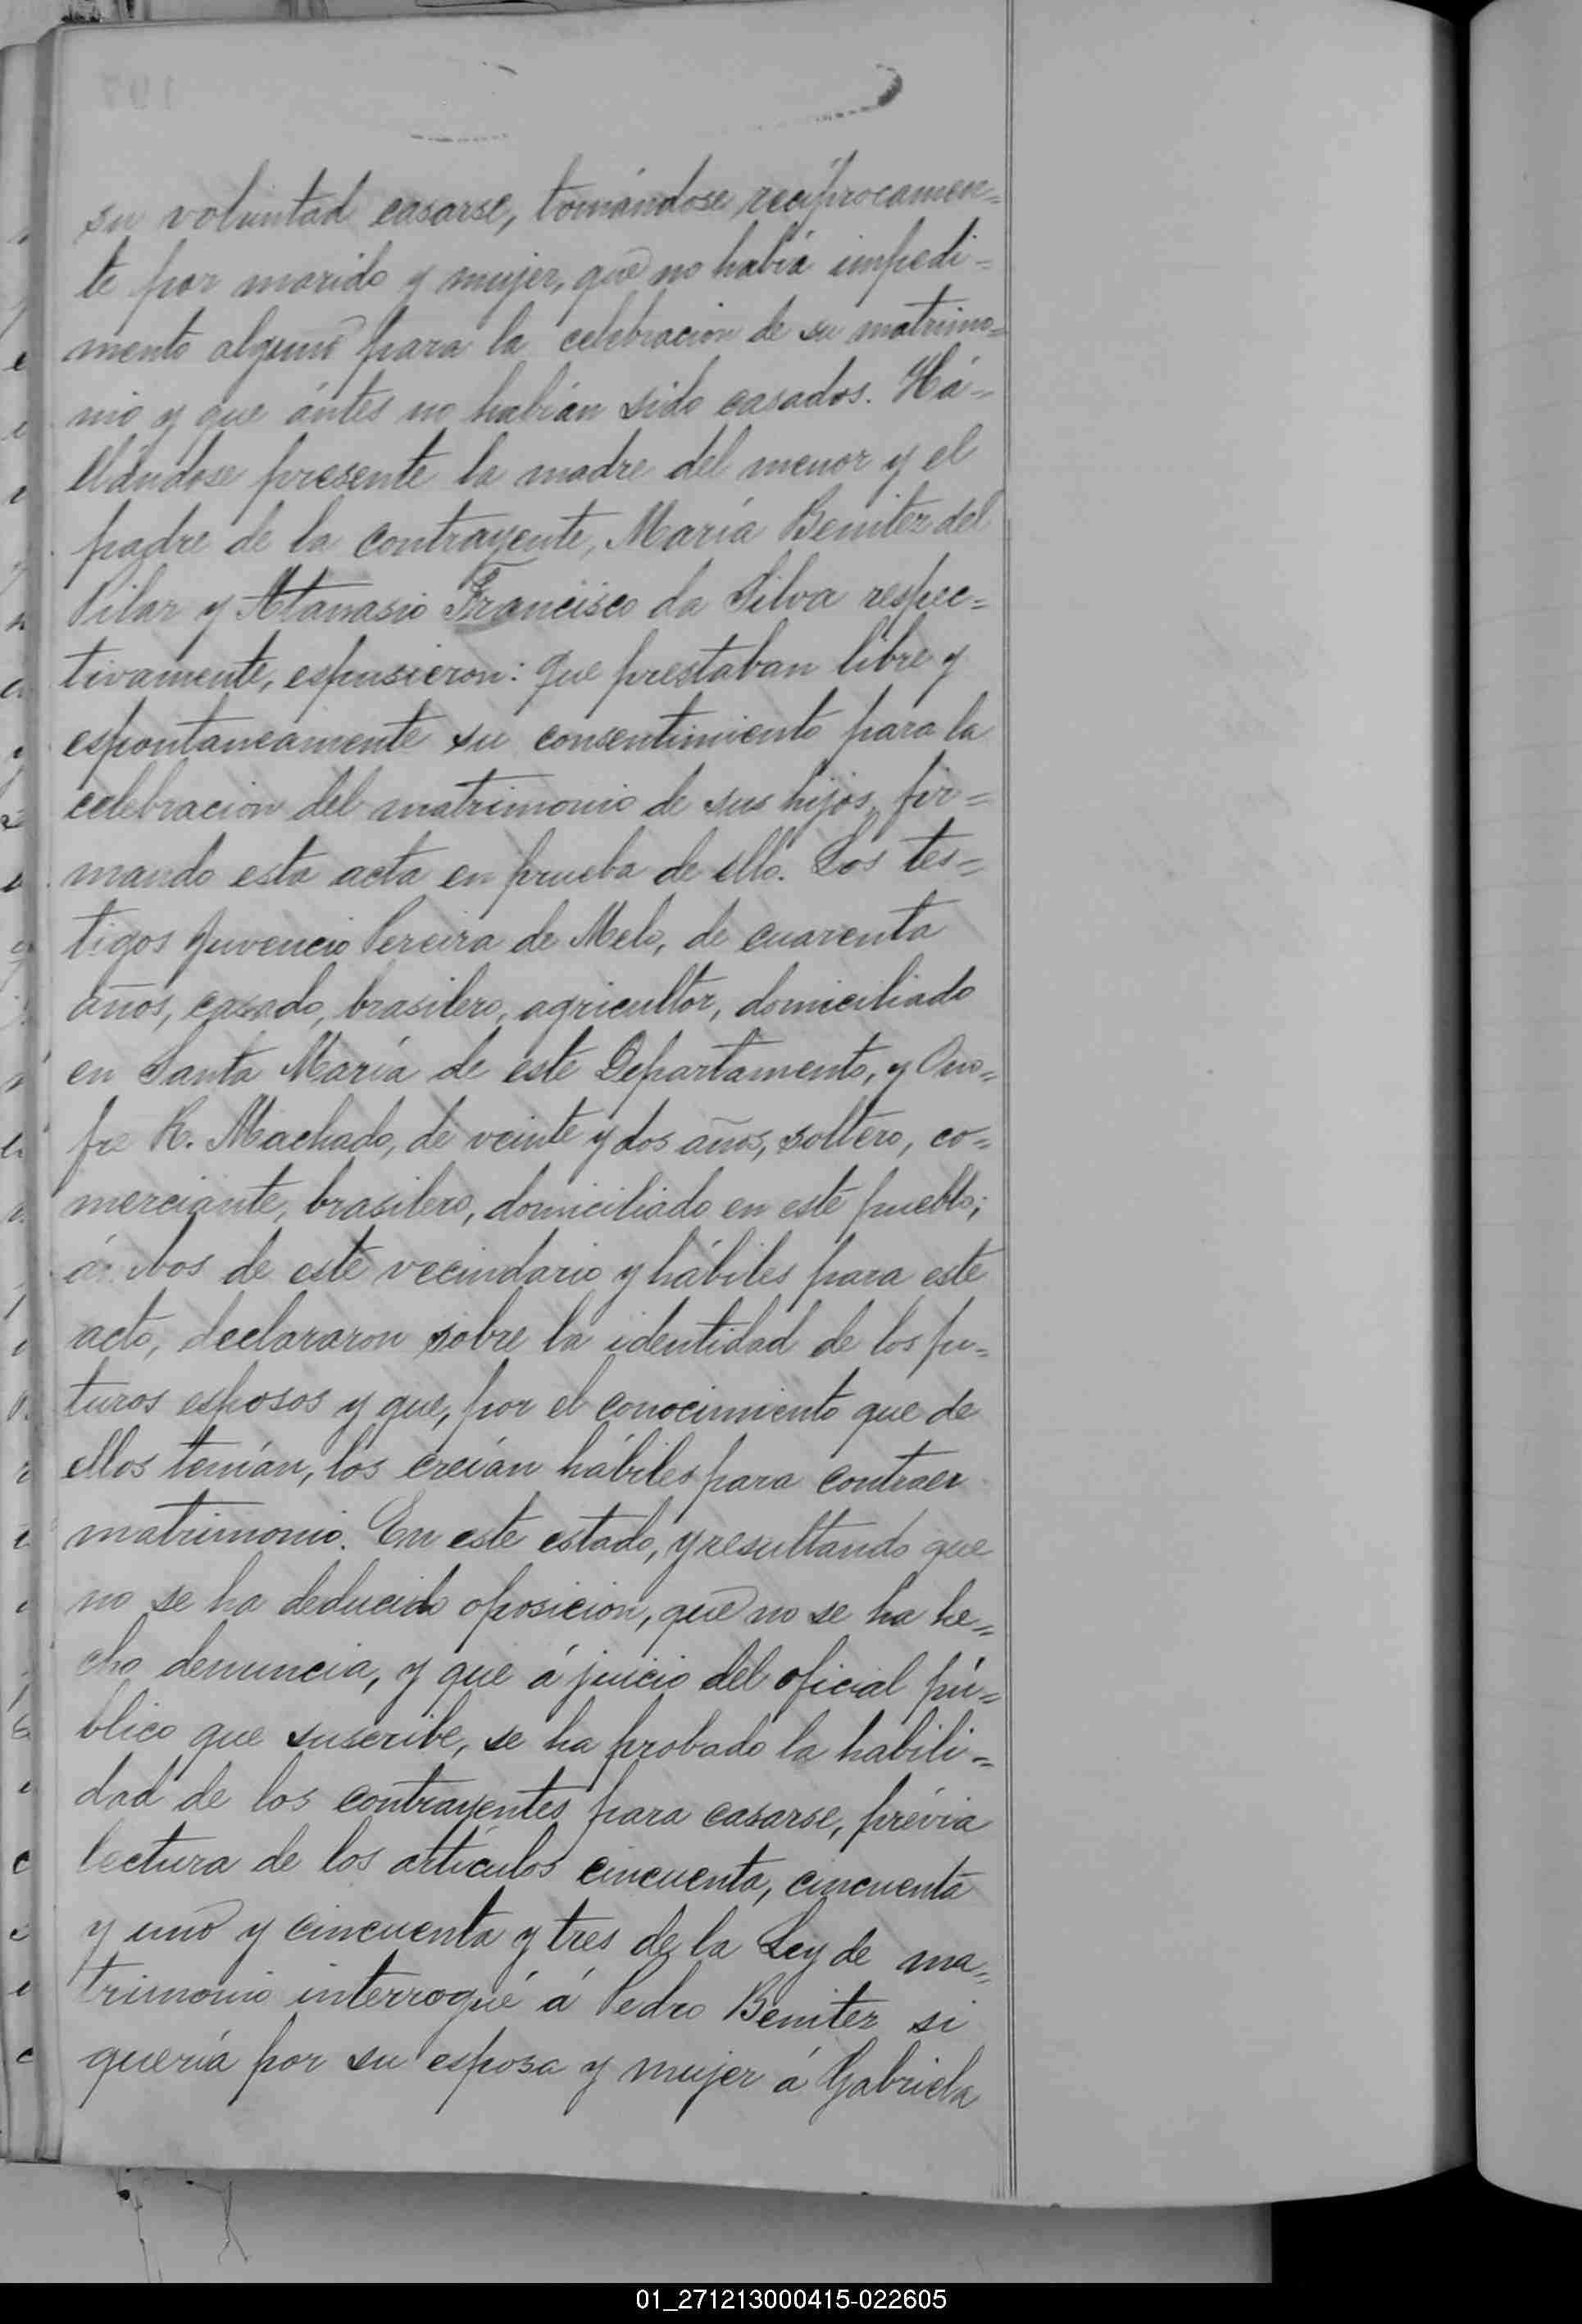 su voluntad casarse, tomándose recíprocamen=
te por marido y mujer, que no había impedi=
mento alguno para la celebracion de su matrimo=
nio y que ántes no habían sido casados. Há=
llándose presente la madre del menor y el
padre de la contrayente, María Benitez del
Pilar y Atanasio Francisco da Silva respec=
tivamente, espusieron: que prestaban libre y
espontaneamente su consentimiento para la
celebracion del matrimonio de sus hijos, fir=
mando esta acta en prueba de ello. Los tes=
tigos Juvencio Pereira de Melo, de cuarenta
años, casado, brasilero, agricultor, domiciliado
en Santa María de este Departamento, y Ono=
fre R. Machado, de veinte y dos años, soltero, co=
merciante, brasilero, domiciliado en este pueblo;
ámbos de este vecindario y hábiles para este
acto, declararon sobre la identidad de los fu=
turos esposos y que, por el conocimiento que de
ellos tenían, los creían hábiles para contraer
matrimonio. En este estado, y resultando que
no se ha deducido oposicion, que no se ha he=
cho denuncia, y que á juicio del oficial pú=
blico que suscribe, se ha probado la habili=
dad de los contrayentes para casarse, prévia
lectura de los artículos cincuenta, cincuenta
y uno y cincuenta y tres de la Ley de ma=
trimonio interrogué á Pedro Benitez si
quería por su esposa y mujer á Gabriela
01_271213000415-022605